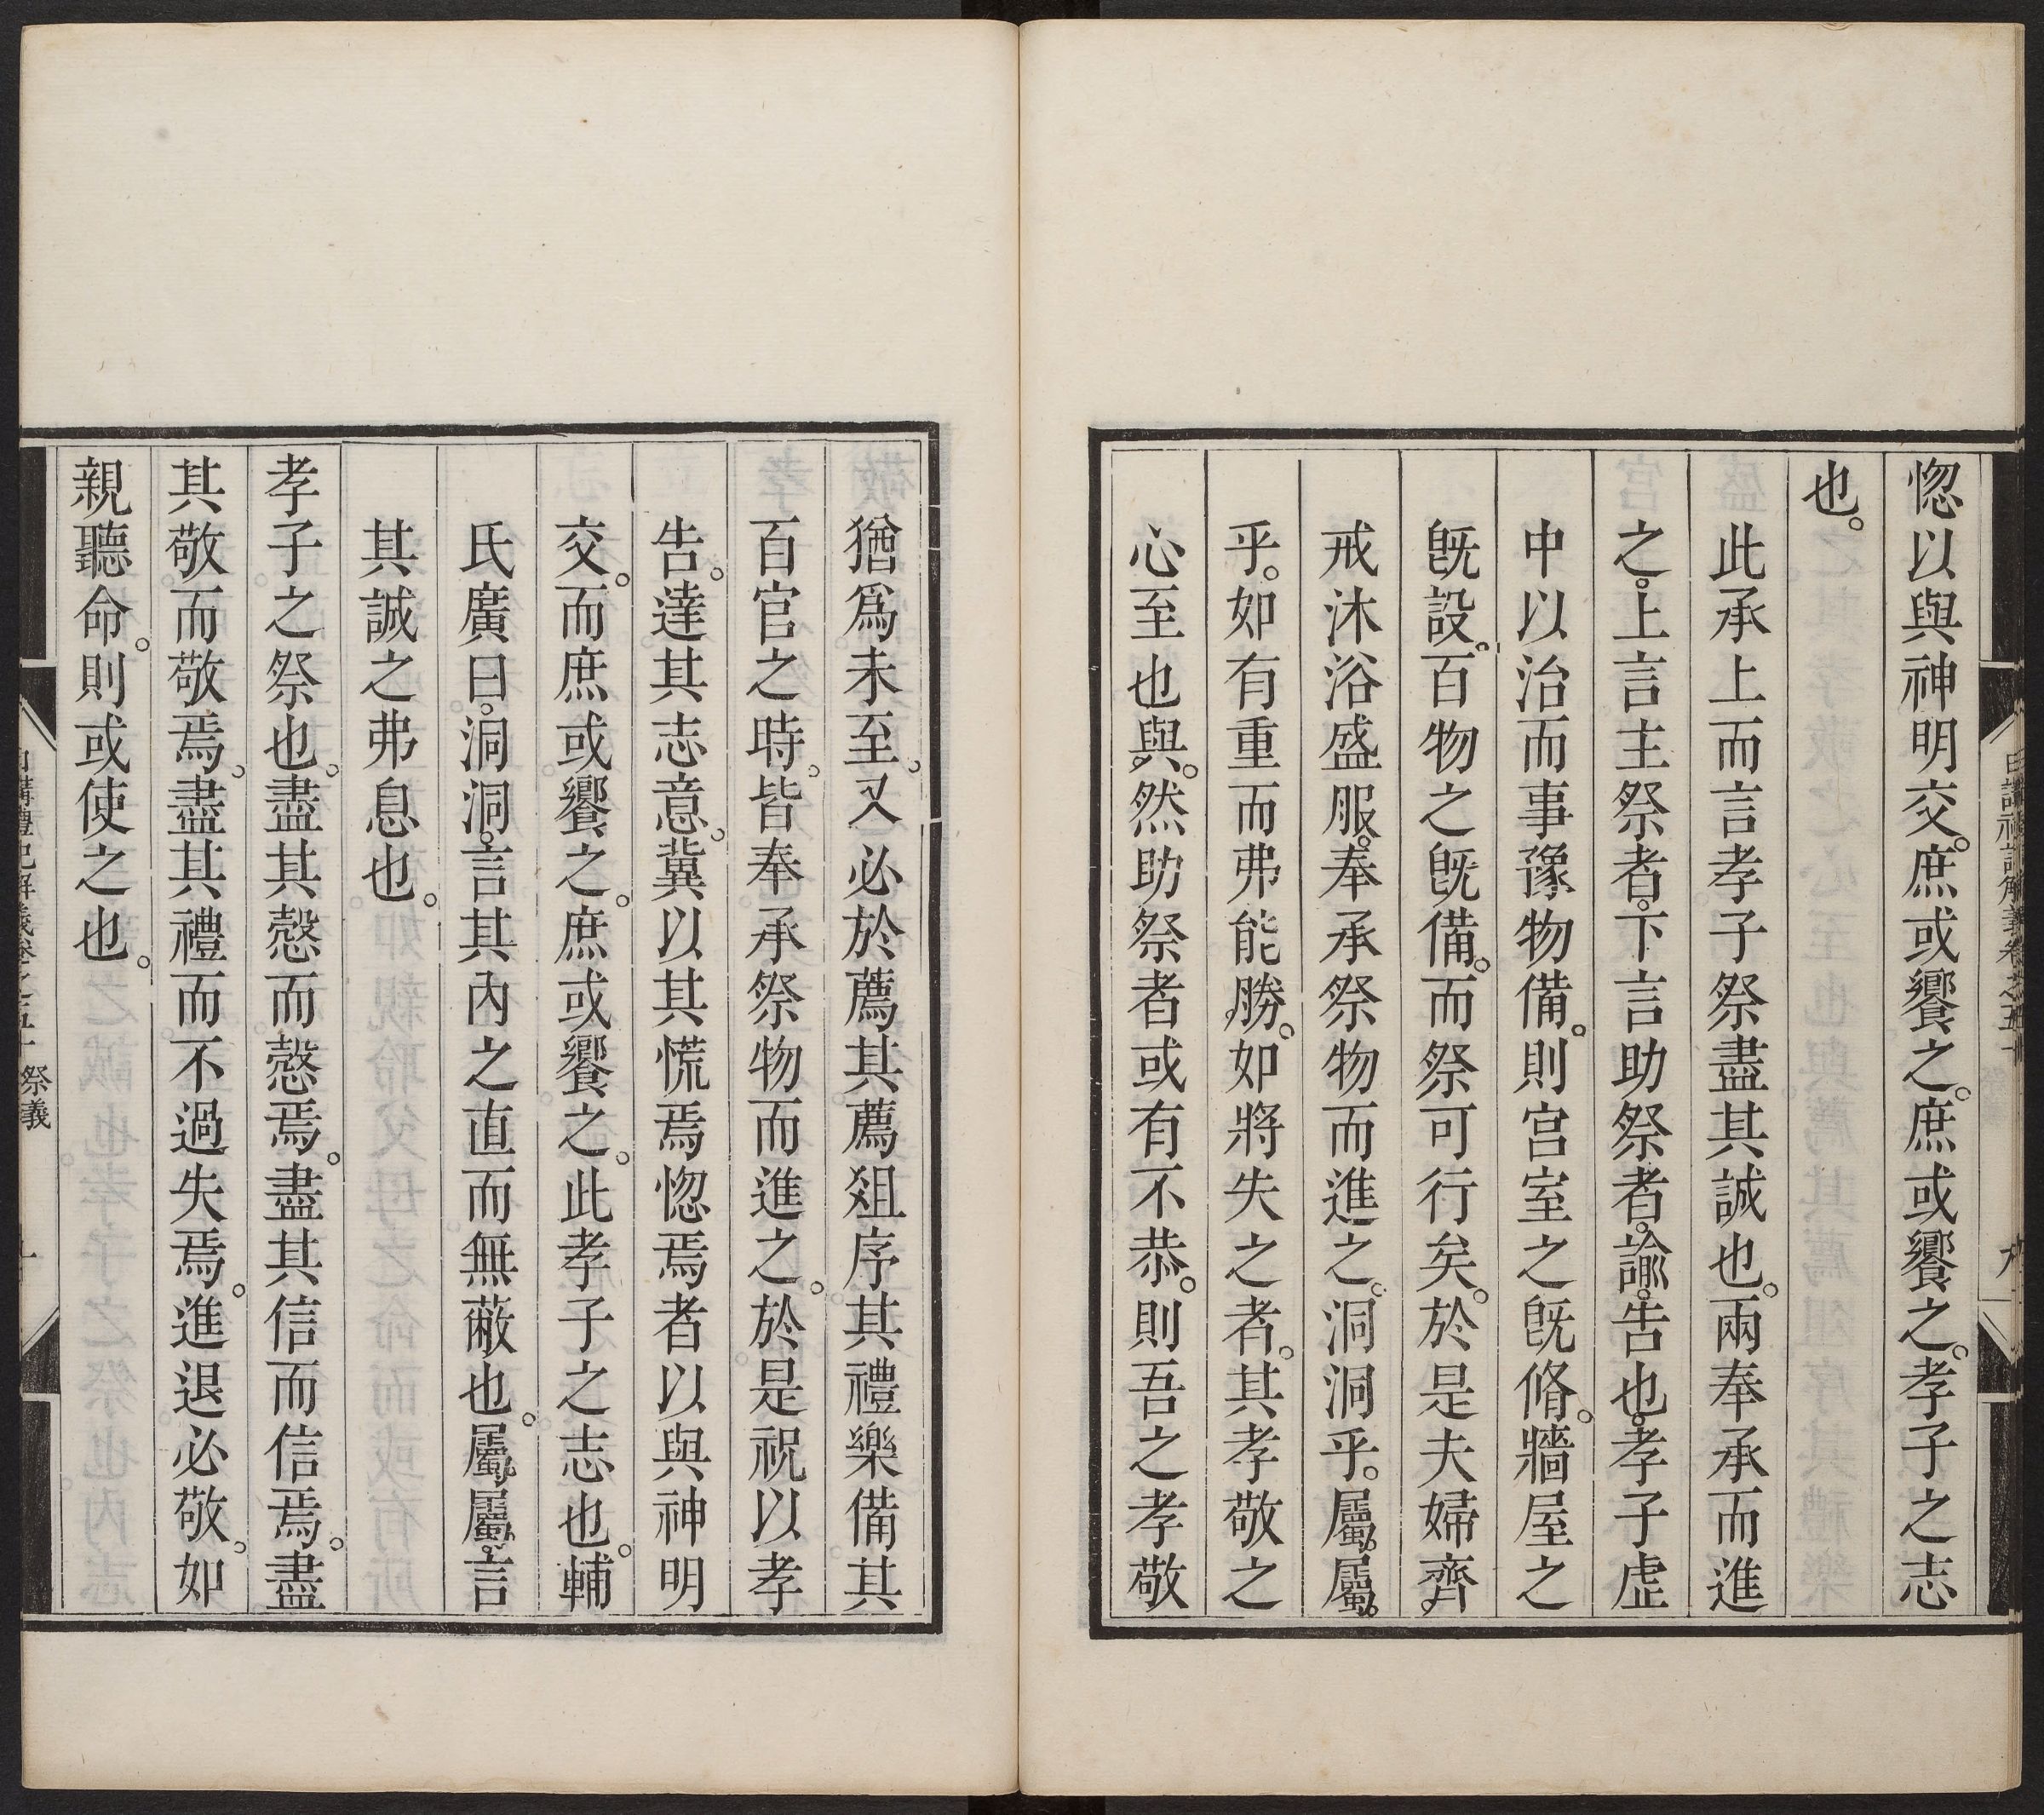 惚以與神明交。庶或饗之。庶或饗之。孝子之志
也。
此承上而言孝子祭盡其誠也。兩奉承而進
之。上言主祭者。下言助祭者。諭。告也。孝子虛
中以治而事豫物備。則宫室之旣脩。牆屋之
旣設。百物之旣備。而祭可行矣。於是夫婦齊。
戒沐浴盛服。奉承祭物而進之。洞洞乎。屬屬。
乎。如有重而弗能勝。如將失之者。其孝敬之
心至也與。然助祭者或有不恭。則吾之孝敬
猶爲未至。又必於薦其薦爼序其禮樂備其
百官之時。皆奉承祭物而進之。於是祝以孝
告。達其志意。冀以其慌焉惚焉者以與神明
交。而庶或饗之。庶或饗之。此孝子之志也。輔
氏廣曰。洞洞。言其內之直而無蔽也。屬屬。言
其誠之弗息也。
孝子之祭也。盡其慤而慤焉。盡其信而信焉。盡
其敬而敬焉。盡其禮而不過失焉。進退必敬。如
親聽命。則或使之也。
日講禮記解義卷之五十 祭義